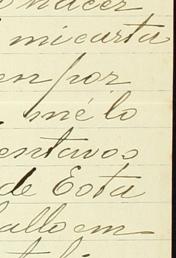 hacer
mi carta
en por
mé lo
entavos
de Esta
allo em